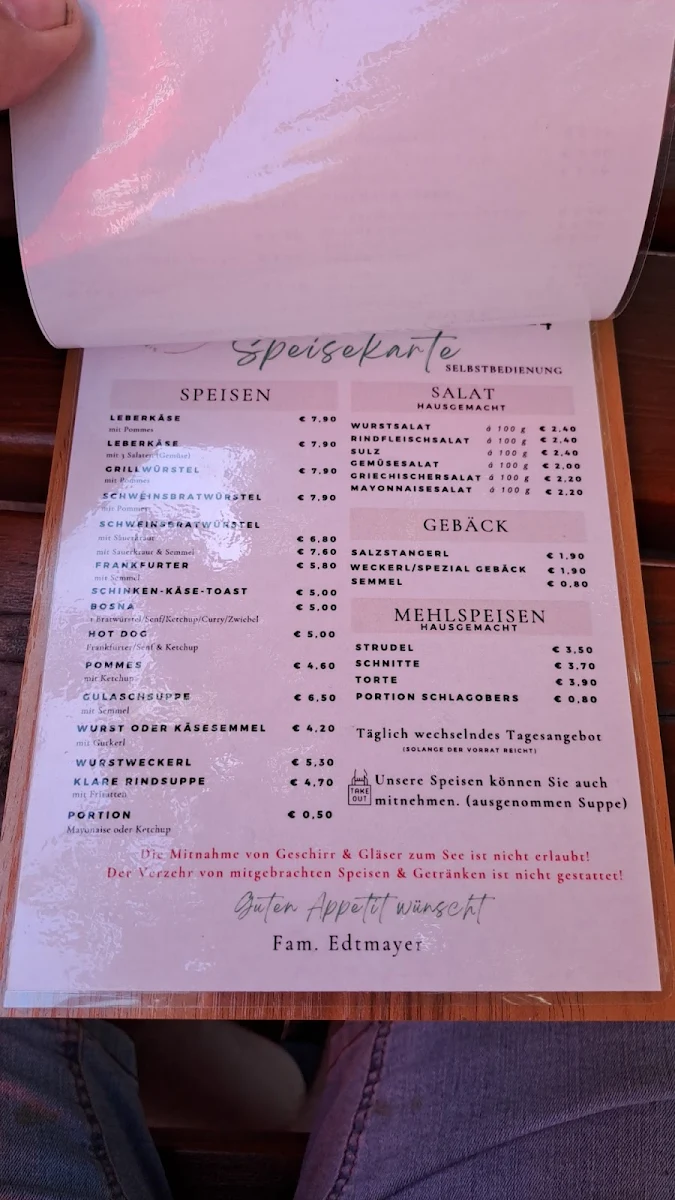 Speisekarte
SELBSTBEDIENUNG
SPEISEN
LEBERKÄSE € 7,90
mit Pommes
LEBERKÄSE € 7,90
mit 3 Salaten (Gemüse)
GRILLWÜRSTEL € 7,90
mit Pommes
SCHWEINSBRATWÜRSTEL € 7,90
mit Pommes
SCHWEINSBRATWÜRSTEL
mit Sauerkraut € 6,80
mit Sauerkraut & Semmel € 7,60
FRANKFURTER € 5,80
mit Semmel
SCHINKEN-KÄSE-TOAST € 5,00
BOSNA € 5,00
1 Bratwürstel/Senf/Ketchup/Curry/Zwiebel
HOT DOG € 5,00
Frankfurter/Senf & Ketchup
POMMES € 4,60
mit Ketchup
GULASCHSUPPE € 6,50
mit Semmel
WURST ODER KÄSESEMMEL € 4,20
mit Gurkerl
WURSTWECKERL € 5,30
KLARE RINDSUPPE € 4,70
mit Frisatten
PORTION € 0,50
Mayonaise oder Ketchup
SALAT
HAUSGEMACHT
WURSTSALAT á 100 g € 2,40
RINDFLEISCHSALAT á 100 g € 2,40
SULZ á 100 g € 2,40
GEMÜSESALAT á 100 g € 2,00
GRIECHISCHERSALAT á 100 g € 2,20
MAYONNAISESALAT á 100 g € 2,20
GEBÄCK
SALZSTANGERL € 1,90
WECKERL/SPEZIAL GEBÄCK € 1,90
SEMMEL € 0,80
MEHLSPEISEN
HAUSGEMACHT
STRUDEL € 3,50
SCHNITTE € 3,70
TORTE € 3,90
PORTION SCHLAGOBERS € 0,80
Täglich wechselndes Tagesangebot
(SOLANGE DER VORRAT REICHT)
TAKE OUT
Unsere Speisen können Sie auch
mitnehmen. (ausgenommen Suppe)
Die Mitnahme von Geschirr & Gläser zum See ist nicht erlaubt!
Der Verzehr von mitgebrachten Speisen & Getränken ist nicht gestattet!
Guten Appetit wünscht
Fam. Edtmayer